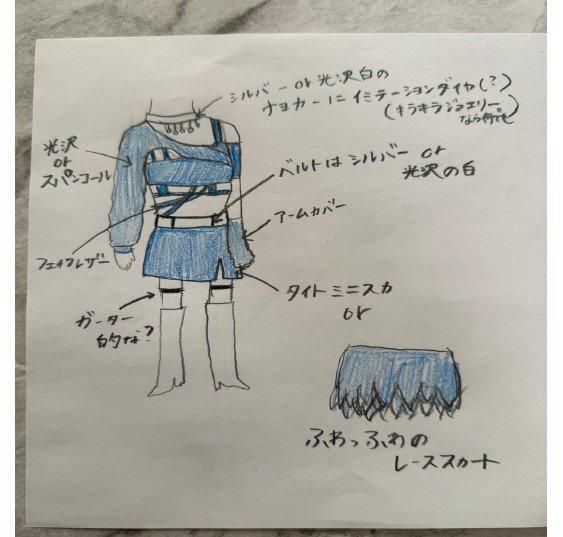 シルバー or 光沢白の
チョカーにイミテーションダイヤ(?)
(キラキラジュエリー
なら何でも)
光沢
or
スパンコール
ベルトは シルバー or
光沢の白
アームカバー
フェイクレザー
タイトミニスカ
or
ガーター
的な?
ふわっふわの
レーススカート